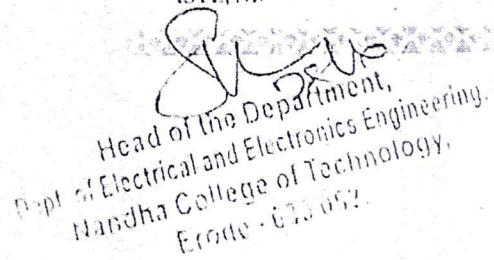 Head of the Department,
Dept. of Electrical and Electronics Engineering,
Nandha College of Technology,
Erode - 638 052.